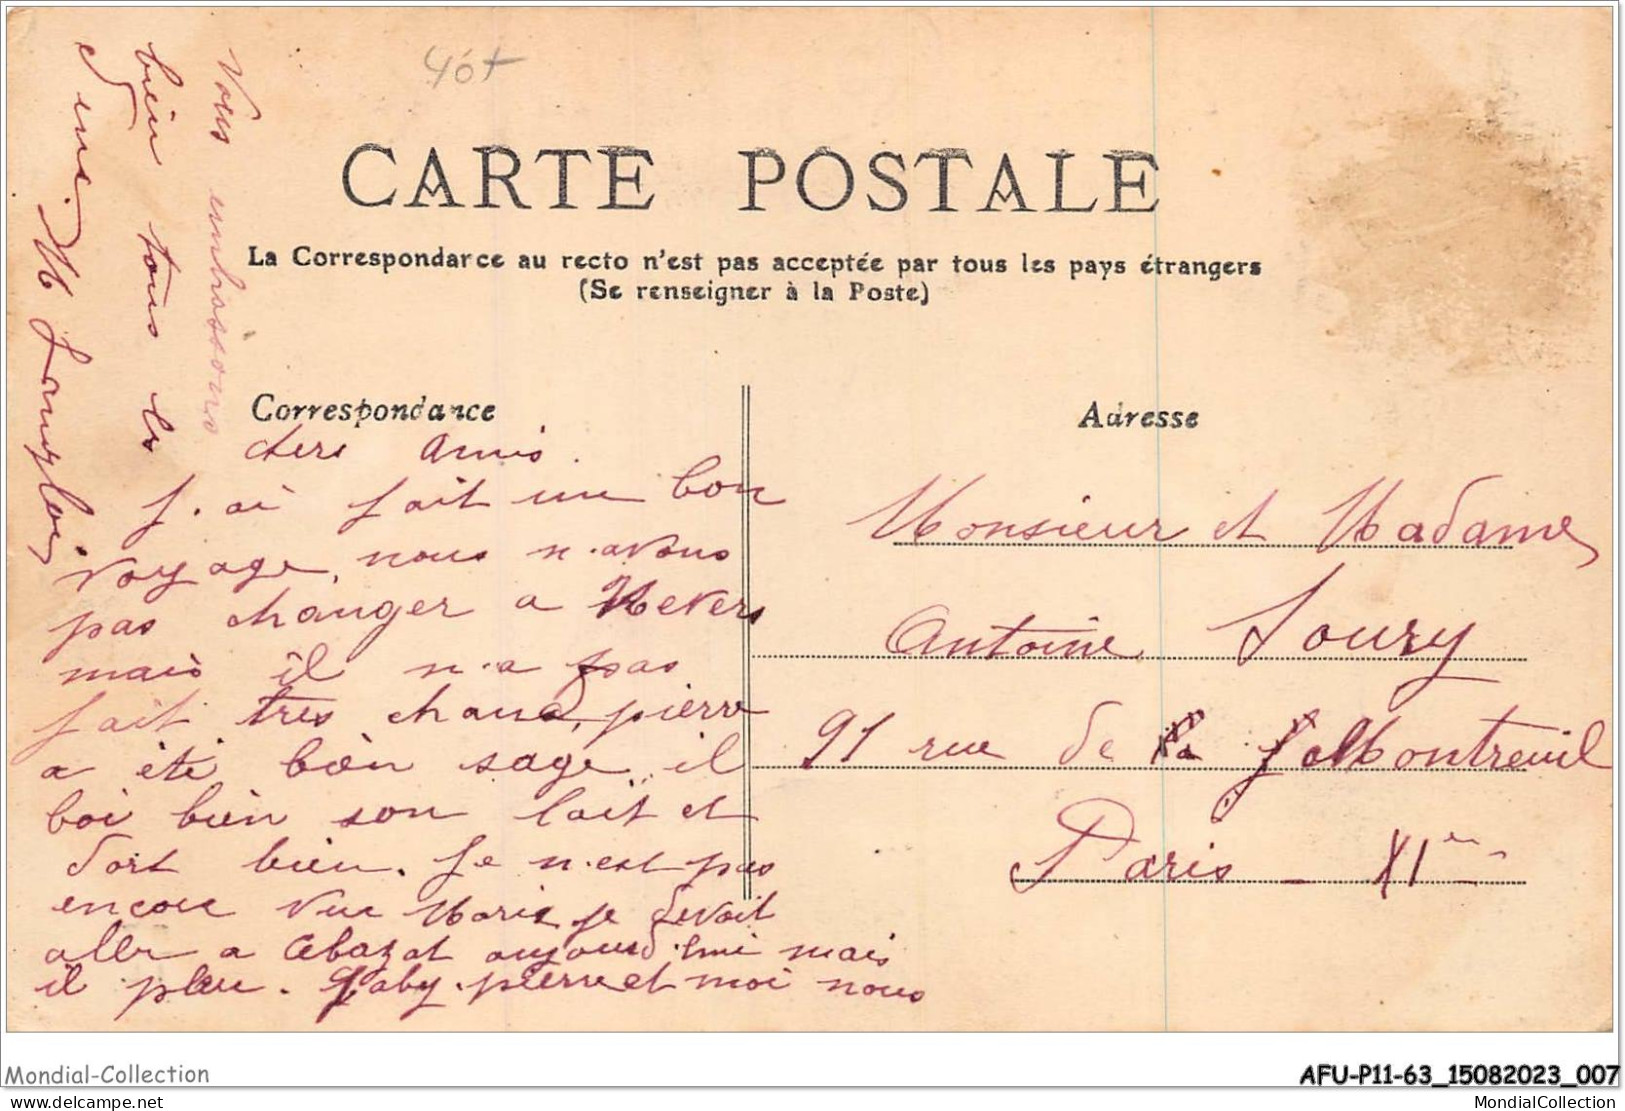 40f
CARTE POSTALE
La Correspondance au recto n'est pas acceptée par tous les pays étrangers
(Se renseigner à la Poste)
Correspondance
Adresse
chers amis.
j.ai fait un bon
voyage, nous n.avons
pas changer a Nevers
mais il n.a pas
fait tres chaud, pierre
a été bien sage, il
boi bien son lait et
dort bien. Je n.est pas
encore vue Marie je devait
aller a Cébazat aujourd.hui mais
il pleu. Gaby. pierre et moi nous
Vous embrassons
bien tous les
deux. M
Monsieur et Madame
Antoine Soury
91 rue de Montreuil
Paris - XIème
Mondial-Collection
AFU-P11-63_15082023_007
delcampe.net
MondialCollection